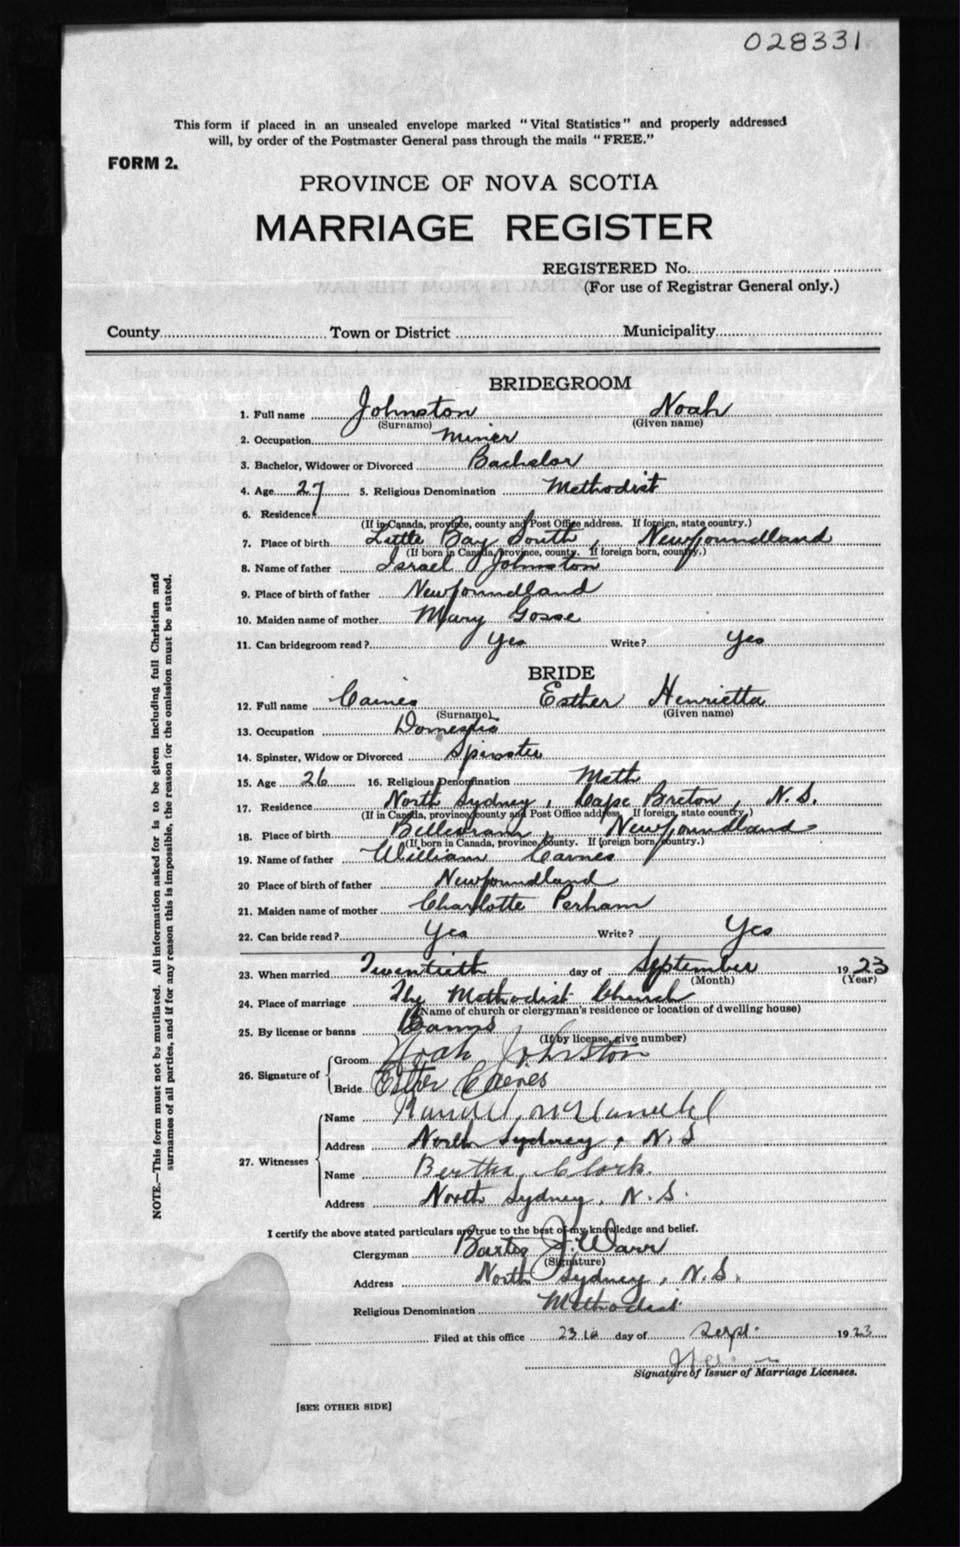 028331
This form if placed in an unsealed envelope marked "Vital Statistics" and properly addressed
will, by order of the Postmaster General pass through the mails "FREE."
FORM 2.
PROVINCE OF NOVA SCOTIA
MARRIAGE REGISTER
REGISTERED No.
(For use of Registrar General only.)
County Town or District Municipality
BRIDEGROOM
1. Full name Johnston Noah
(Surname) (Given name)
2. Occupation Miner
3. Bachelor, Widower or Divorced Bachelor
4. Age 27 5. Religious Denomination Methodist
6. Residence
(If in Canada, province, county and Post Office address. If foreign, state country.)
7. Place of birth Little Bay South, Newfoundland
(If born in Canada, province, county. If foreign born, country.)
8. Name of father Israel Johnston
9. Place of birth of father Newfoundland
10. Maiden name of mother Mary Gosse
11. Can bridegroom read? Yes Write? Yes
BRIDE
12. Full name Caines Esther Henrietta
(Surname) (Given name)
13. Occupation Domestic
14. Spinster, Widow or Divorced Spinster
15. Age 26 16. Religious Denomination Meth
17. Residence North Sydney, Cape Breton, N.S.
(If in Canada, province, county and Post Office address, If foreign, state country.)
18. Place of birth Belleoram, Newfoundland
(If born in Canada, province, county. If foreign born, country.)
19. Name of father William Caines
20 Place of birth of father Newfoundland
21. Maiden name of mother Charlotte Perham
22. Can bride read? Yes Write? Yes
23. When married Twentieth day of September 1923
(Month) (Year)
24. Place of marriage The Methodist Church
(Name of church or clergyman's residence or location of dwelling house)
25. By license or banns Banns
(If by license, give number)
26. Signature of Groom Noah Johnston
Bride Esther Caines
27. Witnesses Name
Address North Sydney, N.S
Name Bertha Clark.
Address North Sydney, N.S.
I certify the above stated particulars are true to the best of my knowledge and belief.
Clergyman Baxter J. Warr
(Signature)
Address North Sydney, N.S.
Religious Denomination Methodist
Filed at this office 23 day of Sept. 1923
Signature of Issuer of Marriage Licenses.
[SEE OTHER SIDE]
NOTE.—This form must not be mutilated. All information asked for is to be given including full Christian and
surnames of all parties, and if for any reason this is impossible, the reason for the omission must be stated.